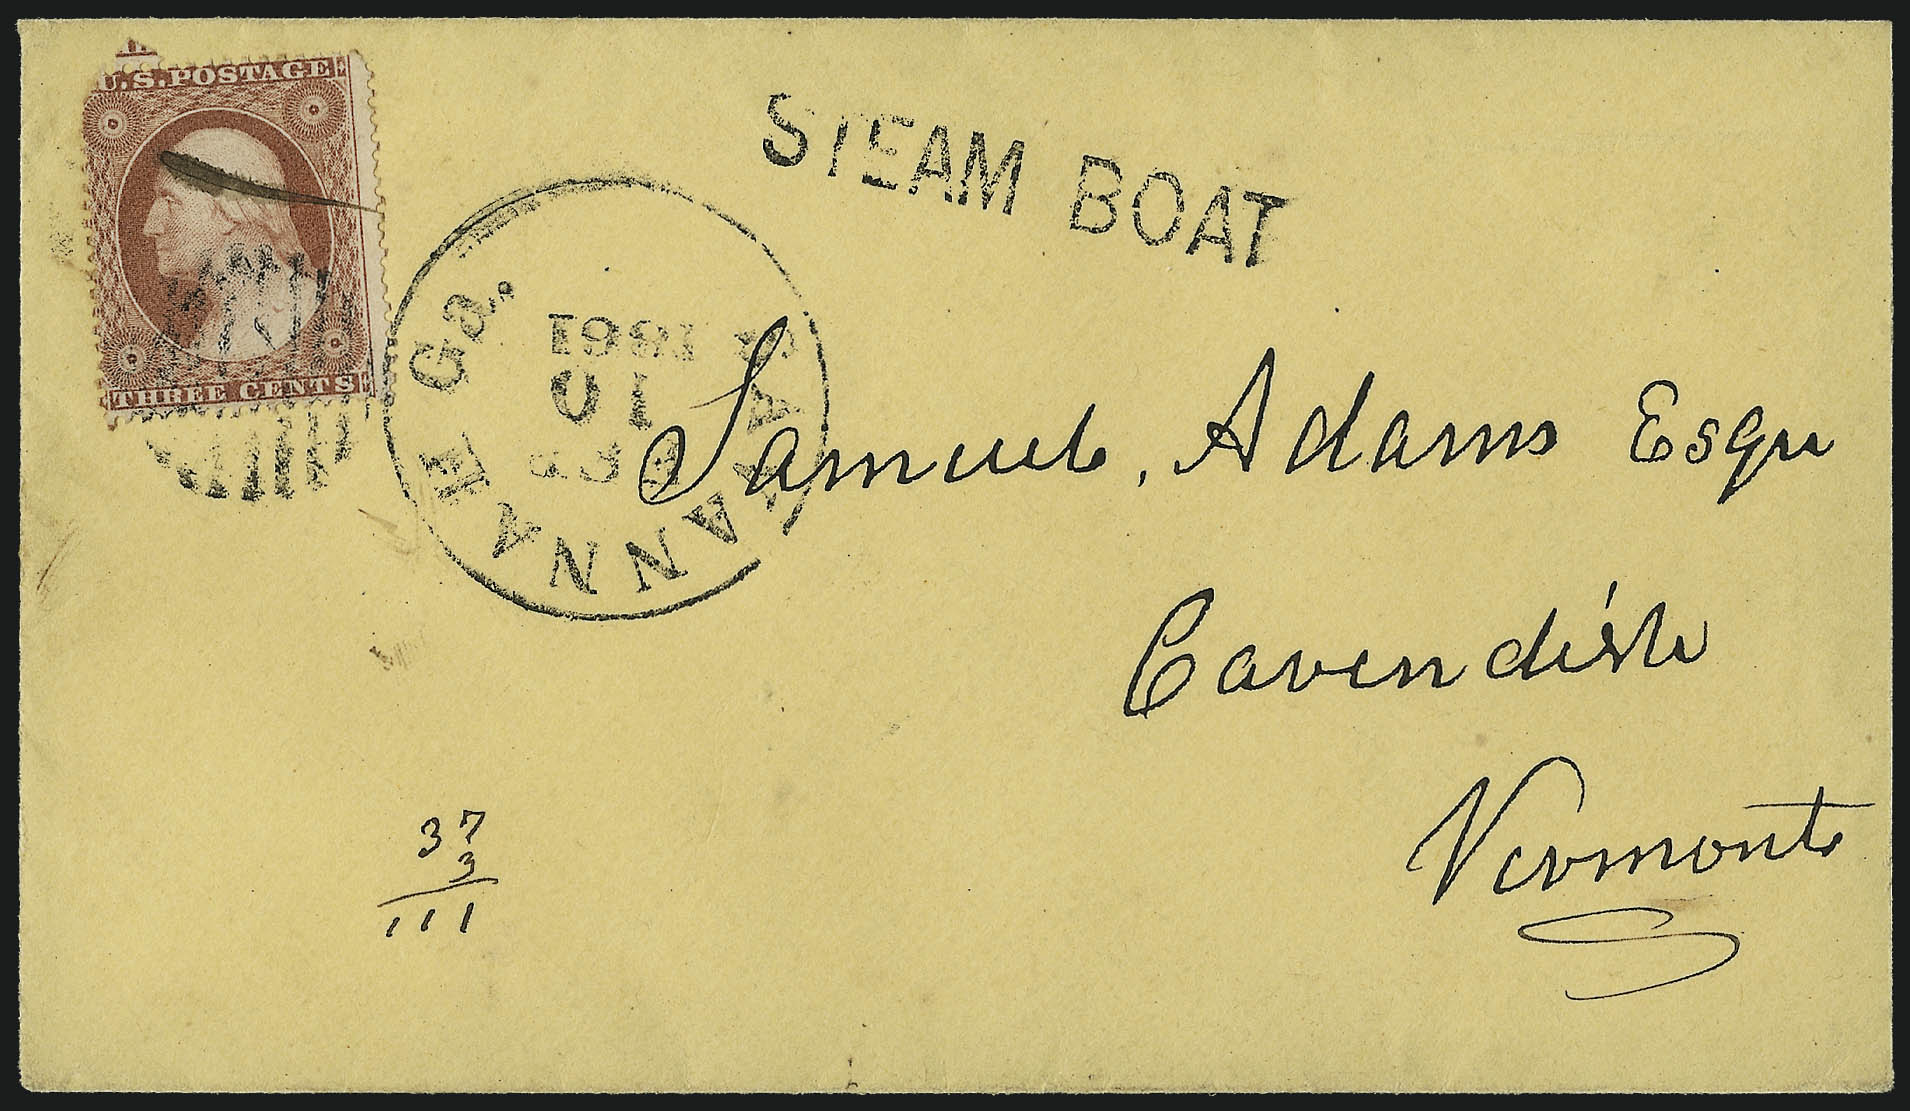 U.S. POSTAGE
THREE CENTS
STEAM BOAT
SAVANNAH Ga.
10
1861
Samuel. Adams Esqu
Cavendish
Vermont
37
3
111